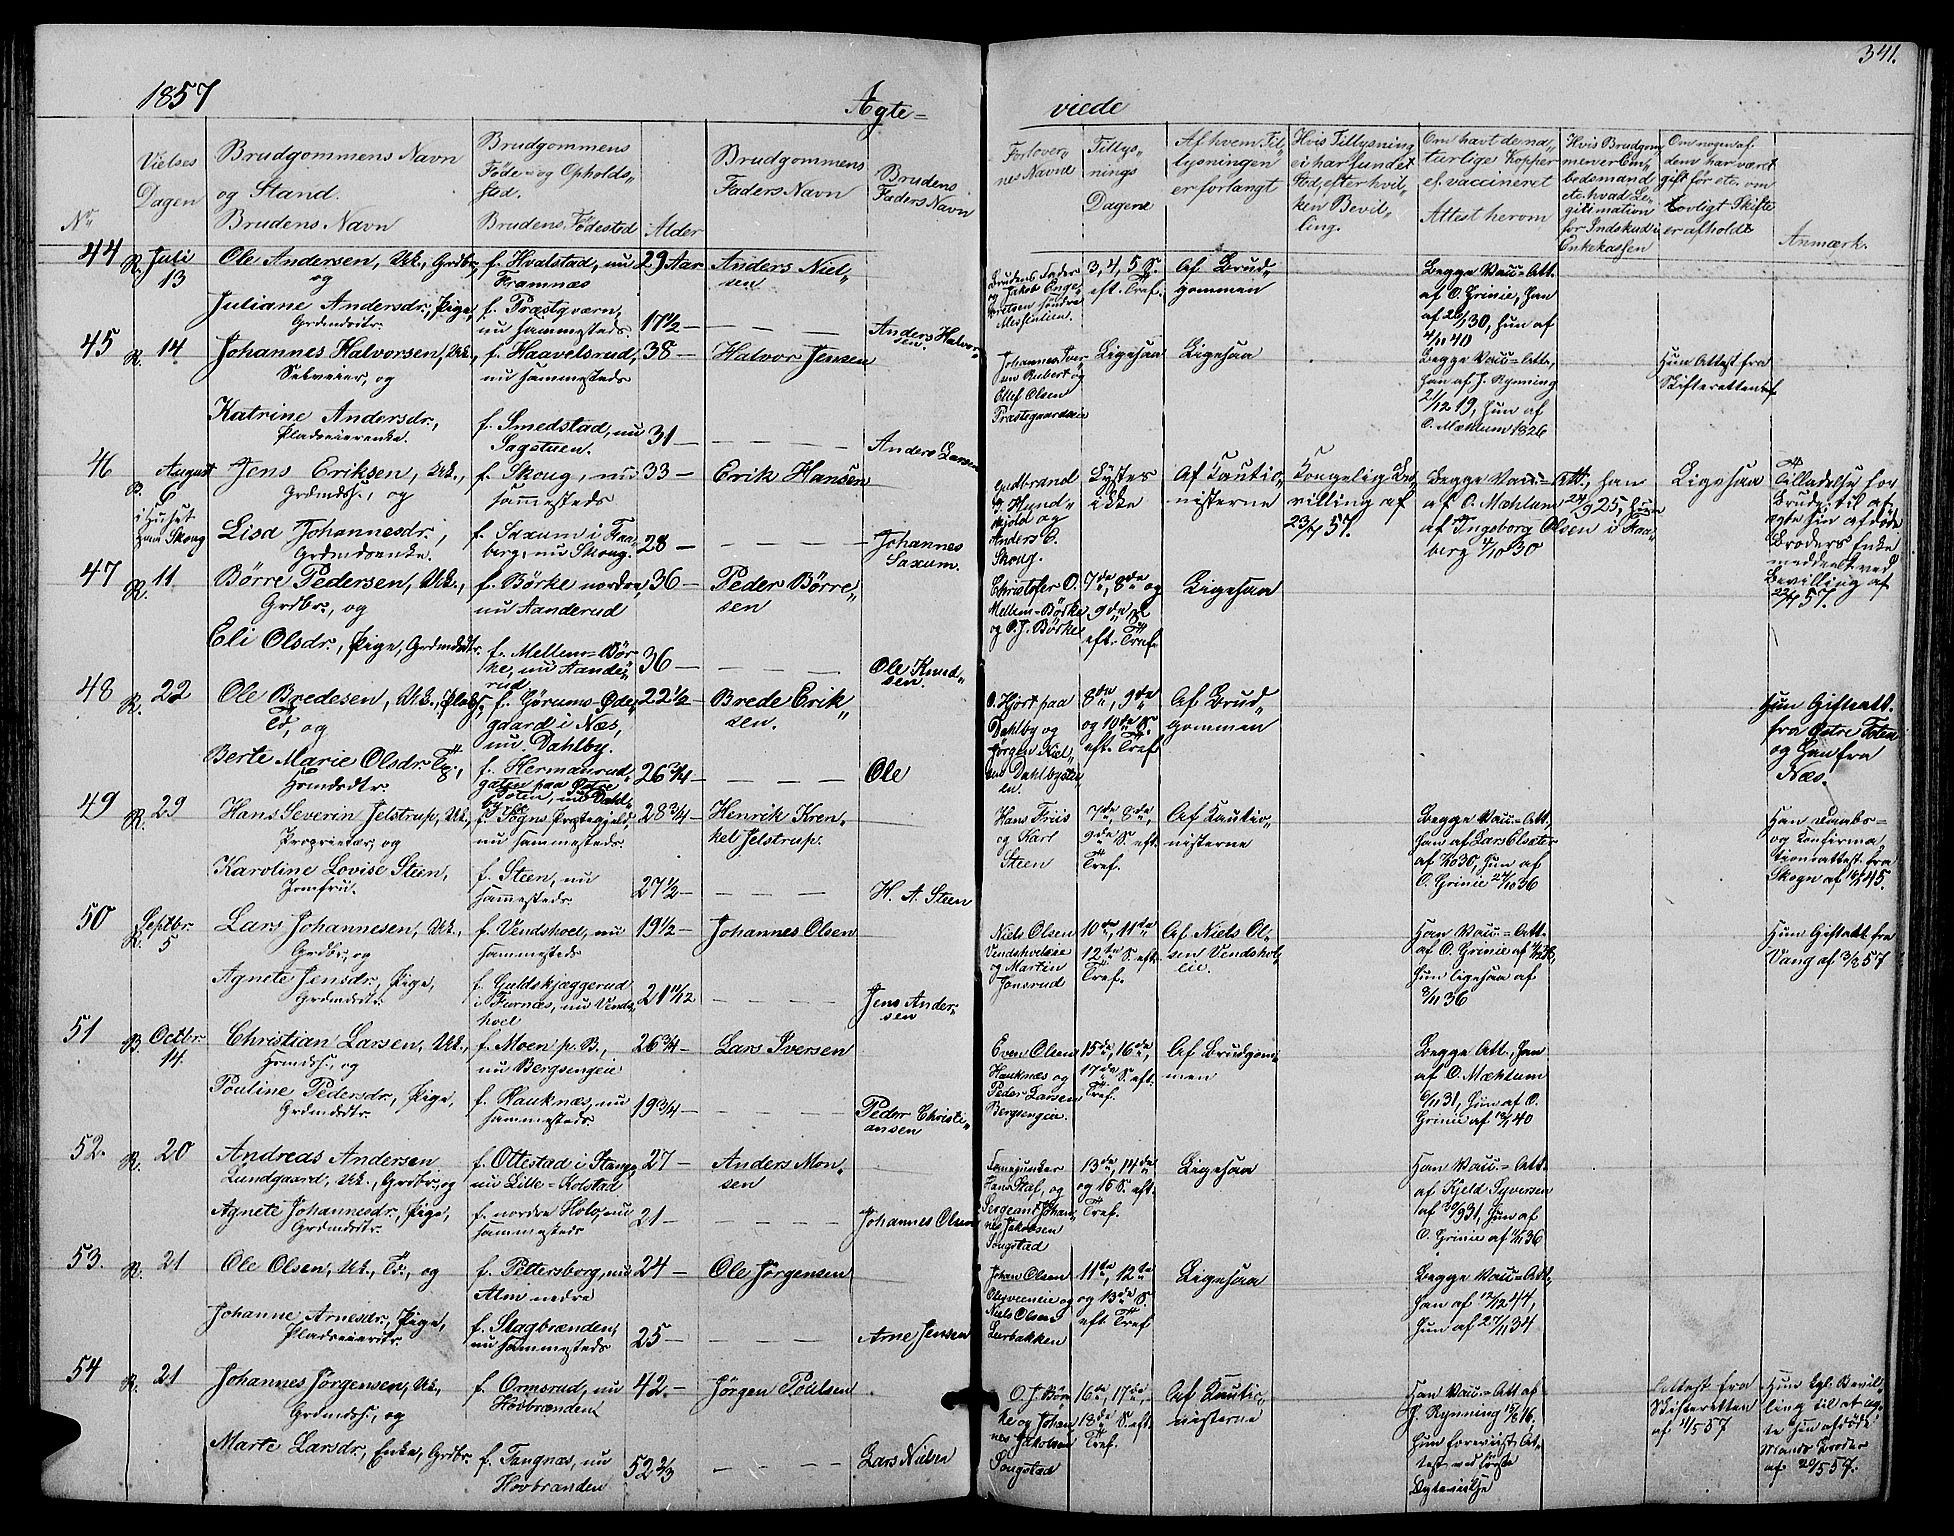 341.
1857
Ægte=
viede
No
Vielses Dagen
Brudgommens Navn og Stand. Brudens Navn
Brudgommens Føde= og Opholds„sted. Brudens Fødested
Alder
Brudgommens Faders Navn
Brudens Faders Navn
Forlover„nes Navne
Tillys„nings Dagene
Af hvem Til„lysningen er forlangt
Hvis Tillysning ei har fundet Sted, efter hvil„ken Bevil„ling.
Om havt de na„turlige Kopper el. vaccineret Attest herom
Hvis Brudgom„men er Em„bedsmand etc. hvad Le„gitimation for Indskud i Enkekassen
Om nogen af dem har været gift før etc. om lovligt Skifte er afholdt
Anmærk.
44 R. Juli 13
Ole Andersen, Uk., Grdbr.,
og
Juliane Andersdr., Pige,
Grdmdsdtr.
f. Hvalstad, nu
Framnæs
f. Præstqværn,
nu sammesteds
29 Aar
17 1/2 —
Anders Niel„
sen
Anders Halvor„
sen.
Brudens Fader
og Jakob Inge„
bretsen søndre
Messenlien.
3, 4, 5 S.
eft. Tref.
Af Brud„
gommen
Begge Vac.= Att.
af O. Grinie, han
af 30, hun af
40
45 R. 14
Johannes Halvorsen, Uk.,
Selveier, og
Katrine Andersdr.,
Pladseierenke.
f. Haavelsrud,
nu sammesteds
f. Smedstad, nu
Sagstuen.
38 —
31 —
Halvor Jensen
Anders Larsen
Johannes Iver„
sen Rubert og
Ollef Olsen
Præstegaardseie
Ligesaa
Ligesaa
Begge Vac.= Att.,
han af J. Rynning
21/12 19, hun af
O. Mæhlum 1826
Hun Attest fra
Skifteretten
46 B. August 6
i Huset
paa Skoug
Jens Eriksen, Uk.,
Grdmdss., og
Lisa Johannesdr.,
Grdmdsenke.
f. Skoug, nu
sammesteds
f. Saxum i Faa„
berg, nu Skoug.
33 —
28 —
Erik Hansen
Johannes
Saxum.
Gudbrand
G. Hund„
skjold og
Anders E.
Skoug.
Lystes
ikke
Af Kautio„
nisterne
Kongelig Be„
villing af
23/7 57.
Begge Vac.= Att., han
af O. Mæhlum 24/9 25, hun
af Ingeborg Olsen i Faa„
berg 4/10 30
Ligesaa
Tilladelse for
Brudg. til at
ægte sin afdøde
Broders Enke
meddeelt ved
Bevilling af
22/7 57.
47 R. 11
Børre Pedersen, Uk.,
Grdbr., og
Eli Olsdr., Pige, Grdmdsdtr.
f. Børke nordre,
nu Aanderud
f. Mellem=Bør„
ke, nu Aande„
rud
36 —
36 —
Peder Børre„
sen
Ole Knud„
sen.
Christofer O.
Mellem=Børke
og O. J. Børke
7de, 8de og
9de S.
eft. Tref.
Ligesaa
48 R. 22
Ole Bredesen, Uk., Plads„
Fd., og
Berte Marie Olsdr.,
Hsmdsdtr.
f. Gørums=Øde„
gaard i Næs,
nu Dahlby.
f. Hermanrud„
gatten paa Østre
Toten, nu Dahl„
by
22 1/2 —
26 3/4 —
Brede Erik„
sen.
Ole
O. Hjort paa
Dahlby og
Jørgen Niel„
sen Dahlbystu„
en.
8de, 9de
og 10de S.
eft. Tref.
Af Brud„
gommen
Hun Gifteatt.
fra Østre Toten
og han fra
Næs.
49 R. 29
Hans Severin Jelstrup, Uk.,
Proprietær, og
Karoline Lovise Steen,
Jomfru.
f. Sogns Præstegjeld,
nu sammesteds.
f. Steen, nu
sammesteds.
28 3/4 —
27 1/2 —
Henrik Kren„
kel Jelstrup.
H. A. Steen
Hans Friis
og Karl
Steen
7de, 8de,
9de S. eft.
Tref.
Af Kautio„
nisterne
Begge Vac.= Att.
han af Lars Olsæter
af 30, hun af
O. Grinie 27/10 36
Han Daabs=
og Konfirma„
tionsattest fra
Skogn af 45.
50 R. Septbr. 5
Lars Johannesen, Uk.,
Grdbr., og
Agnete Jensdr., Pige,
Grdmdsdtr.
f. Vendshoel, nu
sammesteds
f. Guldskjæggerud
i Furnæs, nu Vends„
hoel
19 1/2 —
21 11/12
Johannes Olsen
Jens Ander„
sen
Niels Olsen
Vendsholeie
og Martin
Jonsrud
10de, 11te
12te S. eft.
Tref.
Af Niels Ol„
sen Vendshol„
eie.
Han Vac.= Att.
af O. Grinie af
hun ligesaa af
8/11 36
Hun Giftatt. fra
Vang af 3/8 57
51 B. Octbr. 14
Christian Larsen, Uk.,
Hsmdss., og
Pouline Pedersdr., Pige,
Grdmdsdtr.
f. Moen p. B.,
nu Bergsengeie
f. Hauknæs, nu
sammesteds.
26 3/4 —
19 3/4 —
Lars Iversen
Peder Christi„
ansen
Even Olsen
Hauknæs og
Peder Larsen
Bergsengeie.
15de, 16de,
17de S. eft.
Tref.
Af Brudgom„
men
Begge Att., han
af O. Mæhlum
6/11 31, hun af O.
Grinie af 40
52. R. 20
Andreas Andersen
Lundgaard, Uk., Grdbr., og
Agnete Johannesdr., Pige,
Grdmdsdtr.
f. Ottestad i Stange,
nu Lille=Kolstad
f. nordre Hole, nu
sammesteds
27 —
21 —
Anders Mon„
sen
Johannes Olsen
Fanejunker
Hans Staf, og
Sergeant Johan„
nes Jakobsen
Sougstad
13de, 14de
og 15 S. eft.
Tref.
Ligesaa
Han Vac.= Att.
af Kjeld Syversen
af 30/9 31, hun af
O. Grinie af 36
53. R. 21
Ole Olsen, Uk., Fd., og
Johanne Arnesdr., Pige,
Pladseierdtr.
f. Pettersborg, nu
Alm nedre
f. Slagbrænden,
nu sammesteds
24 —
25 —
Ole Jørgensen
Arne Jensen
Johan Olsen
og
Niels Olsen
Lurbakken
11te, 12te
og 13de S.
eft. Tref.
Ligesaa
Begge Vac.= Att.,
han af 12/12 44,
hun af 27/11 34
54 R. 21
Johannes Jørgensen, Uk.,
Grdmdss., og
Marte Larsdr., Enke, Grdbr.
f. Ormsrud, nu
Hovbrænden
f. Tangnæs, nu
Hovbrænden
42. —
52 2/3
Jørgen Poulsen
Lars Nielsen
O. J. Bør„
ke og Johan„
nes Jakobsen
Sougstad
16de, 17de,
18de S. eft.
Tref.
Af Kautio„
nisterne
Han Vac.= Att. af
J. Rynning 16.
Hun foreviist At„
test ved første
Ægtevielse
Attest fra
Skifteretten
af 4/5 57
Hun kgl. Bevil„
ling til at æg„
te sin afdøde
Mands Broder
af 20/5 57.